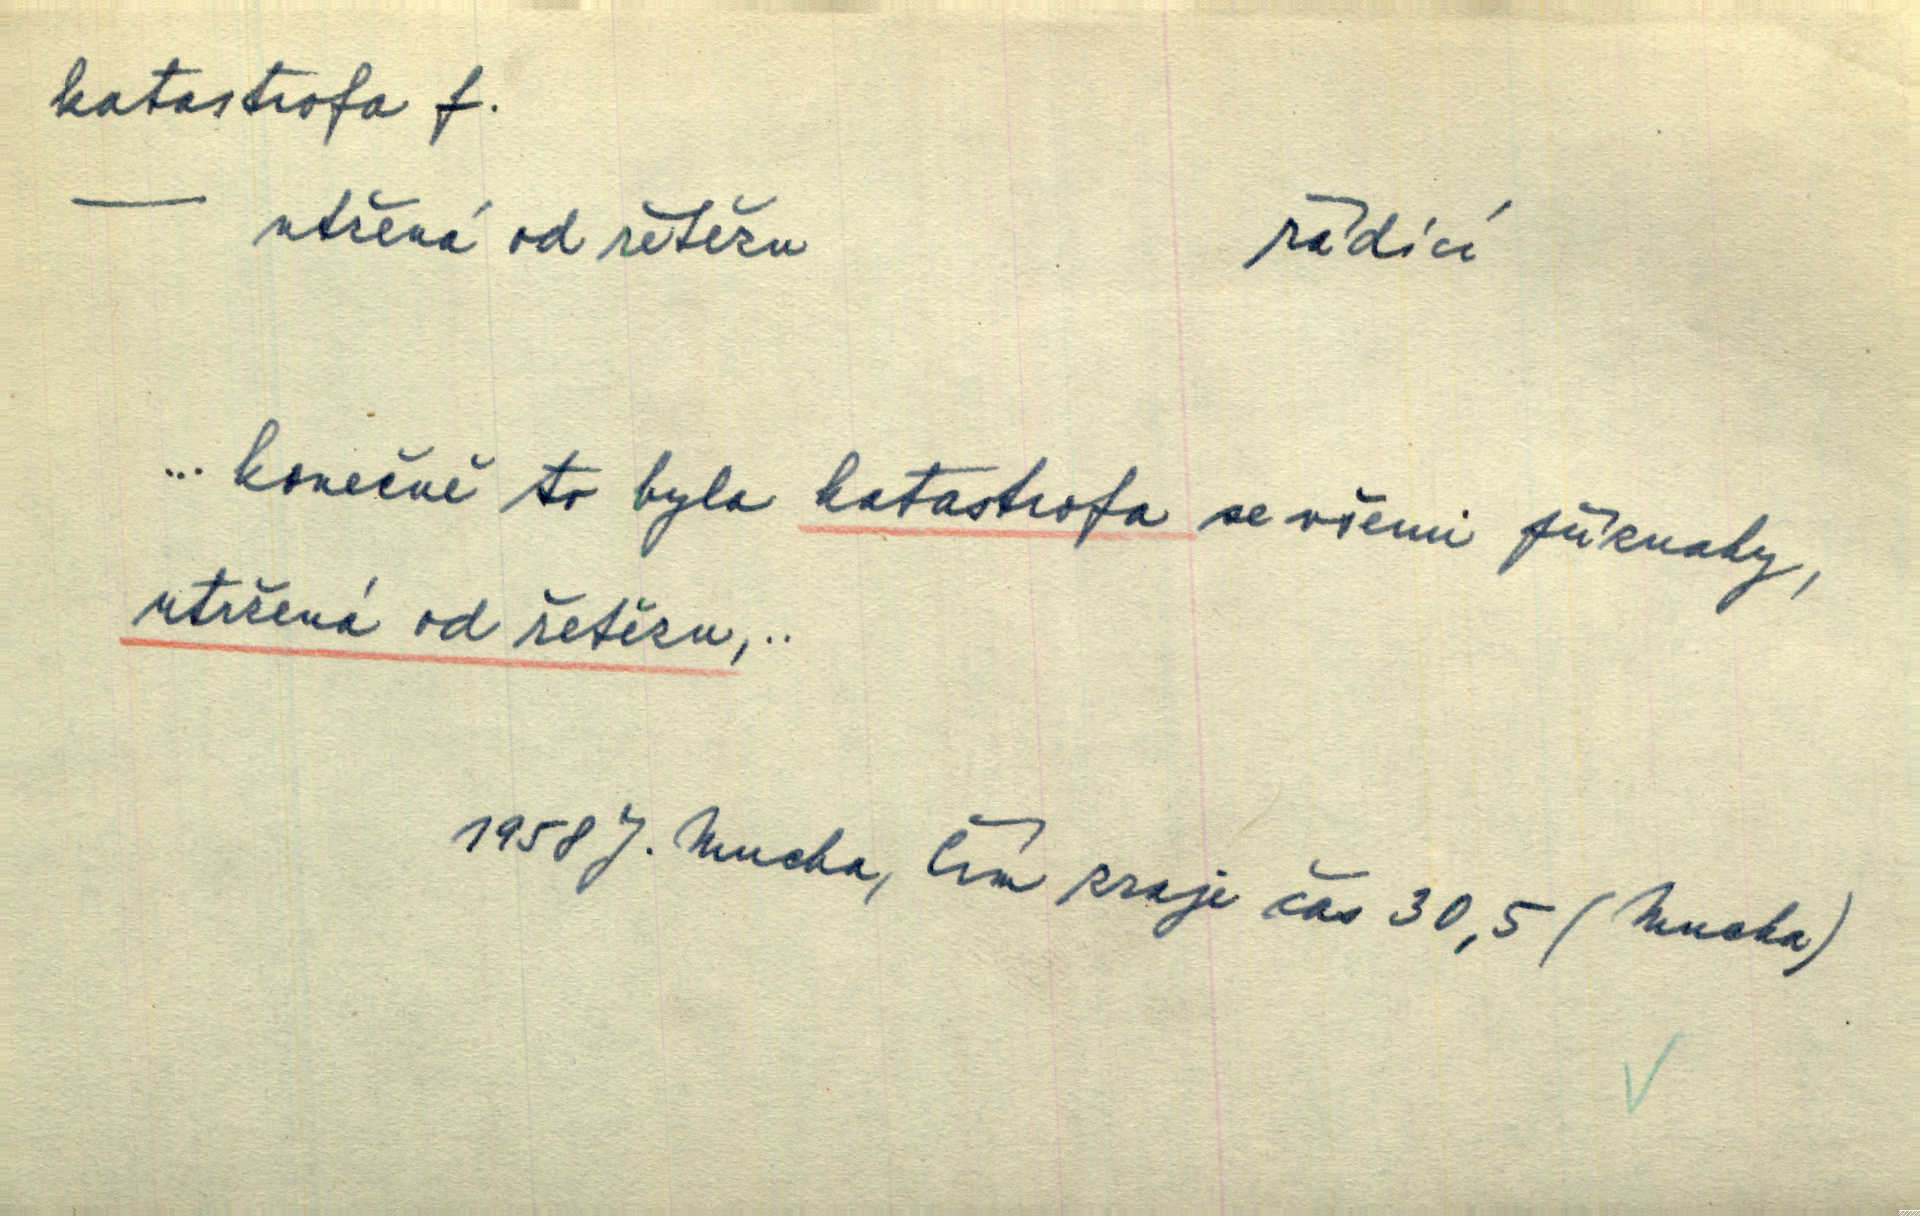 katastrofa f.
— utržená od řetězu řádící
... konečně to byla katastrofa se všemi příznaky,
utržená od řetězu, ..
1958 J. Mucha, Čím zraje čas 30,5 (Mucha)